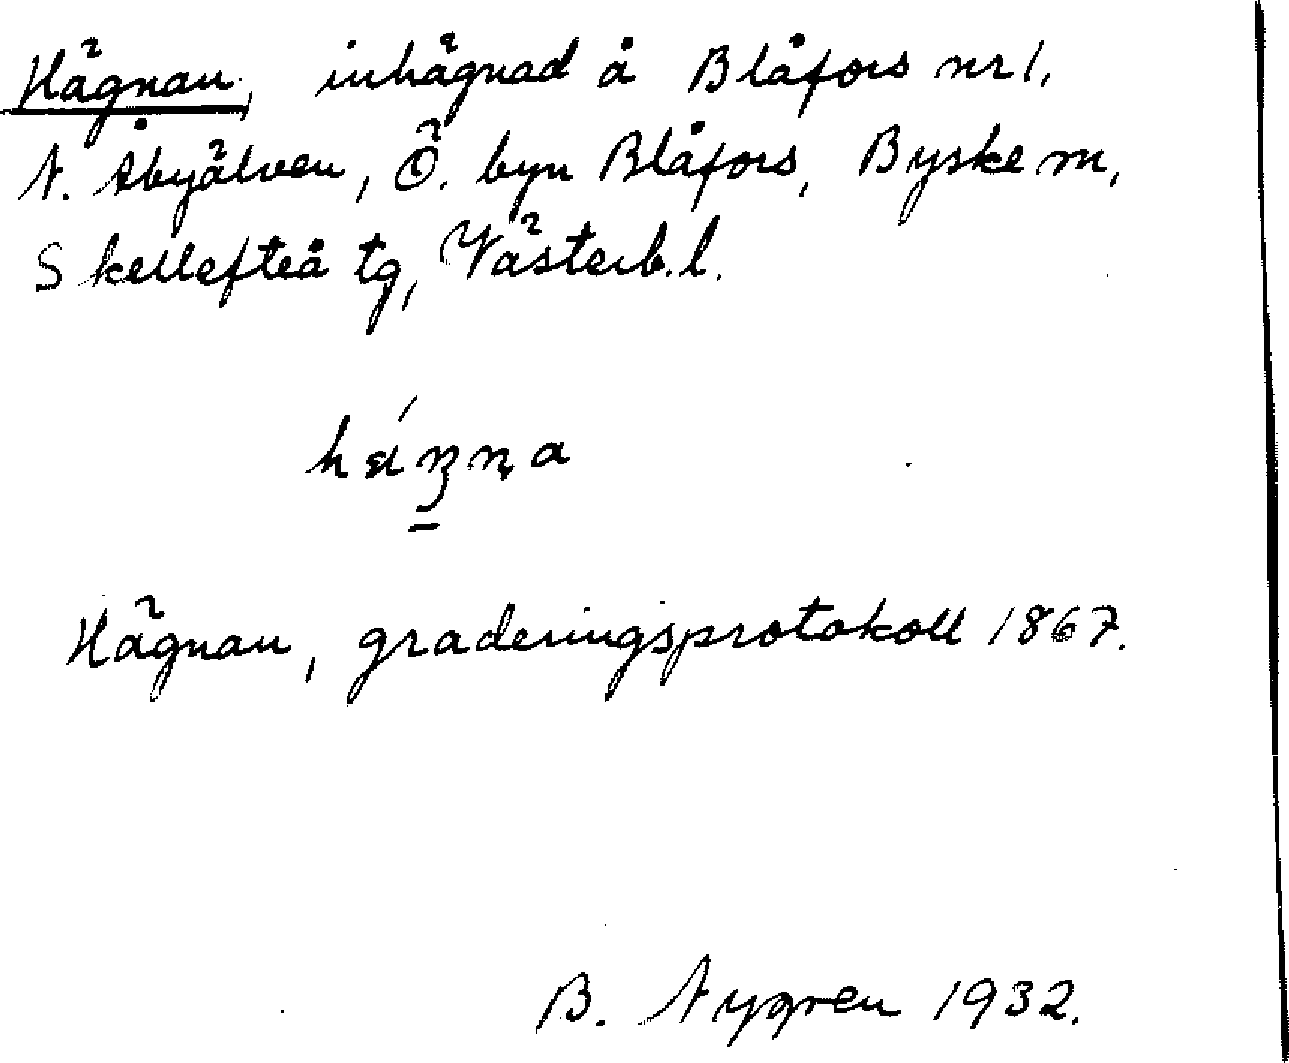 Hägnan, inhägnad å Blåfors nr 1,
N. Åbyälven, Ö. byn Blåfors, Byske sn,
Skellefteå tg, Västerb. l.
Hägnan, graderingsprotokoll 1867.
B. Nygren 1932.